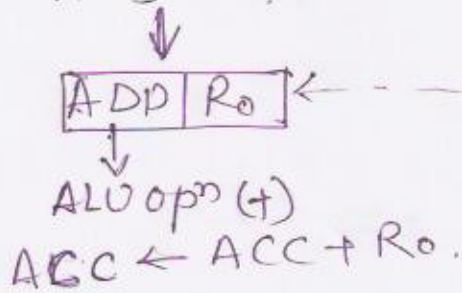 ADD R₀
ALU opⁿ (+)
ACC ← ACC + R₀.